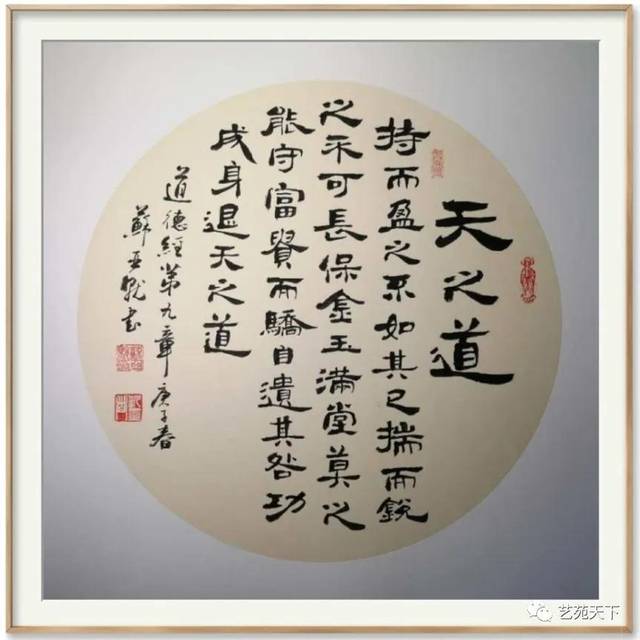 天之道
持而盈之不如其已揣而銳
之不可長保金玉滿堂莫之
能守富貴而驕自遺其咎功
成身退天之道
道德經第九章庚子春
蘇亚书
艺苑天下